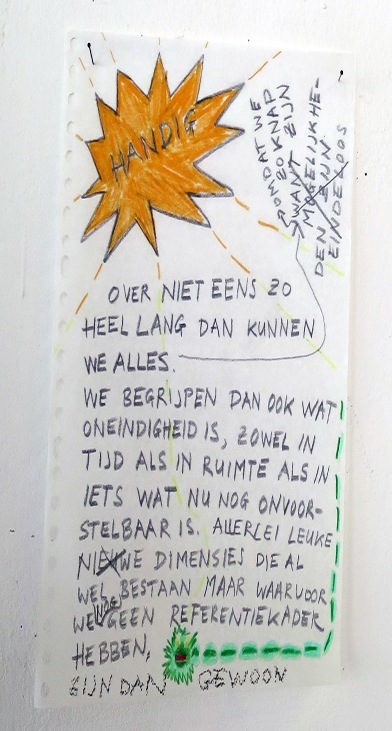 HANDIG
OMDAT WE
ZO KNAP
ZIJN
WANT
MOGELIJKHE-
DEN ZIJN
EINDELOOS
OVER NIET EENS ZO
HEEL LANG DAN KUNNEN
WE ALLES.
WE BEGRIJPEN DAN OOK WAT
ONEINDIGHEID IS, ZOWEL IN
TIJD ALS IN RUIMTE ALS IN
IETS WAT NU NOG ONVOOR-
STELBAAR IS. ALLERLEI LEUKE
NIEUWE DIMENSIES DIE AL
WEL BESTAAN MAAR WAARVOOR
WE NOG GEEN REFERENTIEKADER
HEBBEN,
ZIJN DAN GEWOON